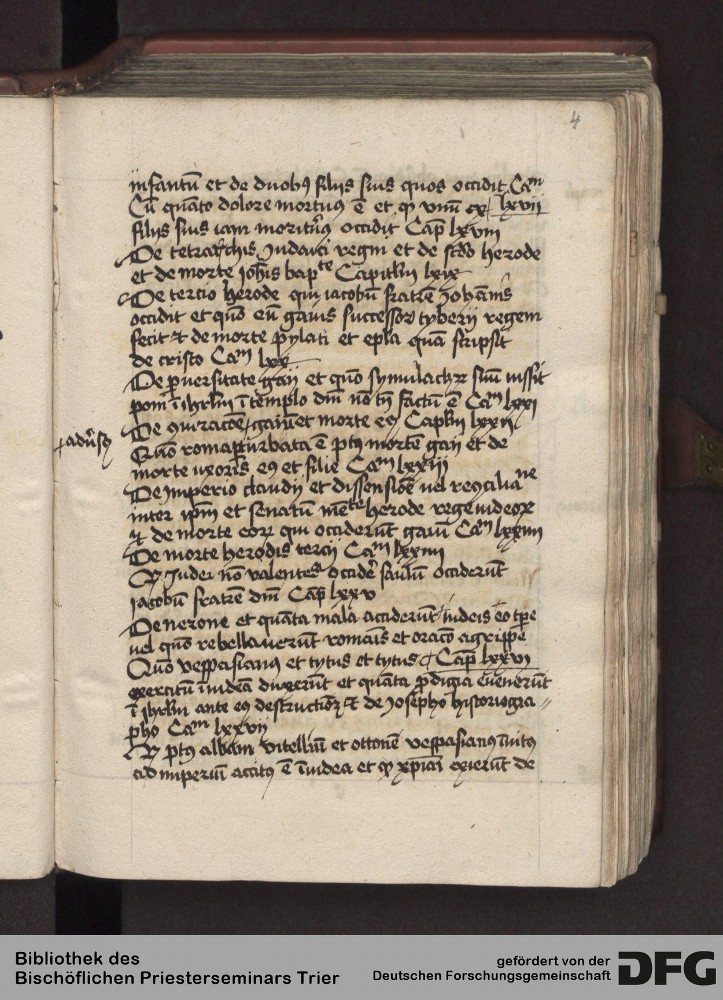 4
infantũ et de duobꝯ filijs suis quos occidit Caᵐ
Cũ quãto dolore mortuus ẽ et ꝙ vnũ ex lxvii
filijs suis iam moriturꝯ occidit Cap̃ lxviii
De tetrarchis Iudaici regni et de scd̃o herode
et de morte ioh̃is bapᵗᵉ Capitl̃m lxix
De tercio herode qui iacobũ fratrẽ Iohãnis
occidit et quõ eũ gaius successor tyberij regem
fecit ⁊ de morte pylati et epl̃a quã scripsit
de cristo Caᵐ lxx
De ꝑuersitate gaij et quõ symulachꝝ suũ iussit
poni ĩ ih̃rl̃m ĩ templo dñi nõ tñ factũ ẽ Caᵐ lxxi
De gaiũ et morte eꝯ Capl̃m lxxii
+ adũsꝯ
Quõ roma ꝑturbata ẽ ptꝯ mortẽ gaij et de
morte vxoris eꝯ et filie Caᵐ lxxiii
De Imperio claudij et dissensiõe uel recõciliaⁿᵉ
inter ip̃m et senatũ herode rege
⁊ de morte eorꝝ qui occiderũt gaiũ Caᵐ lxxiiii
De morte herodis tercij Caᵐ lxxiiii
ꝙ Iudei nõ valentes occidẽ saulũ occiderũt
iacobũ fratrẽ dñi Cap̃ lxxv
De nerone et quãta mala acciderũt iudeis eo tꝑe
uel quõ rebellauerũt romãis et agrippe
Quõ vespasianꝯ et tytus et tytus Cap̃ lxxvi
exercitũ ĩ iudeã duxerũt et quãta ꝓdigia euenerũt
ĩ ih̃rl̃m ante eꝯ destructiõẽ ⁊ de Iosepho historiogra⸗
pho Caᵐ lxxvii
ꝙ ptꝯ albam vitelliũ et ottonẽ vespasianꝯ ĩuitꝯ
ad imperiũ accitꝯ ẽ ĩ iudea et ꝙ xp̃iani exierũt de
Bibliothek des
Bischöflichen Priesterseminars Trier
gefördert von der
Deutschen Forschungsgemeinschaft DFG